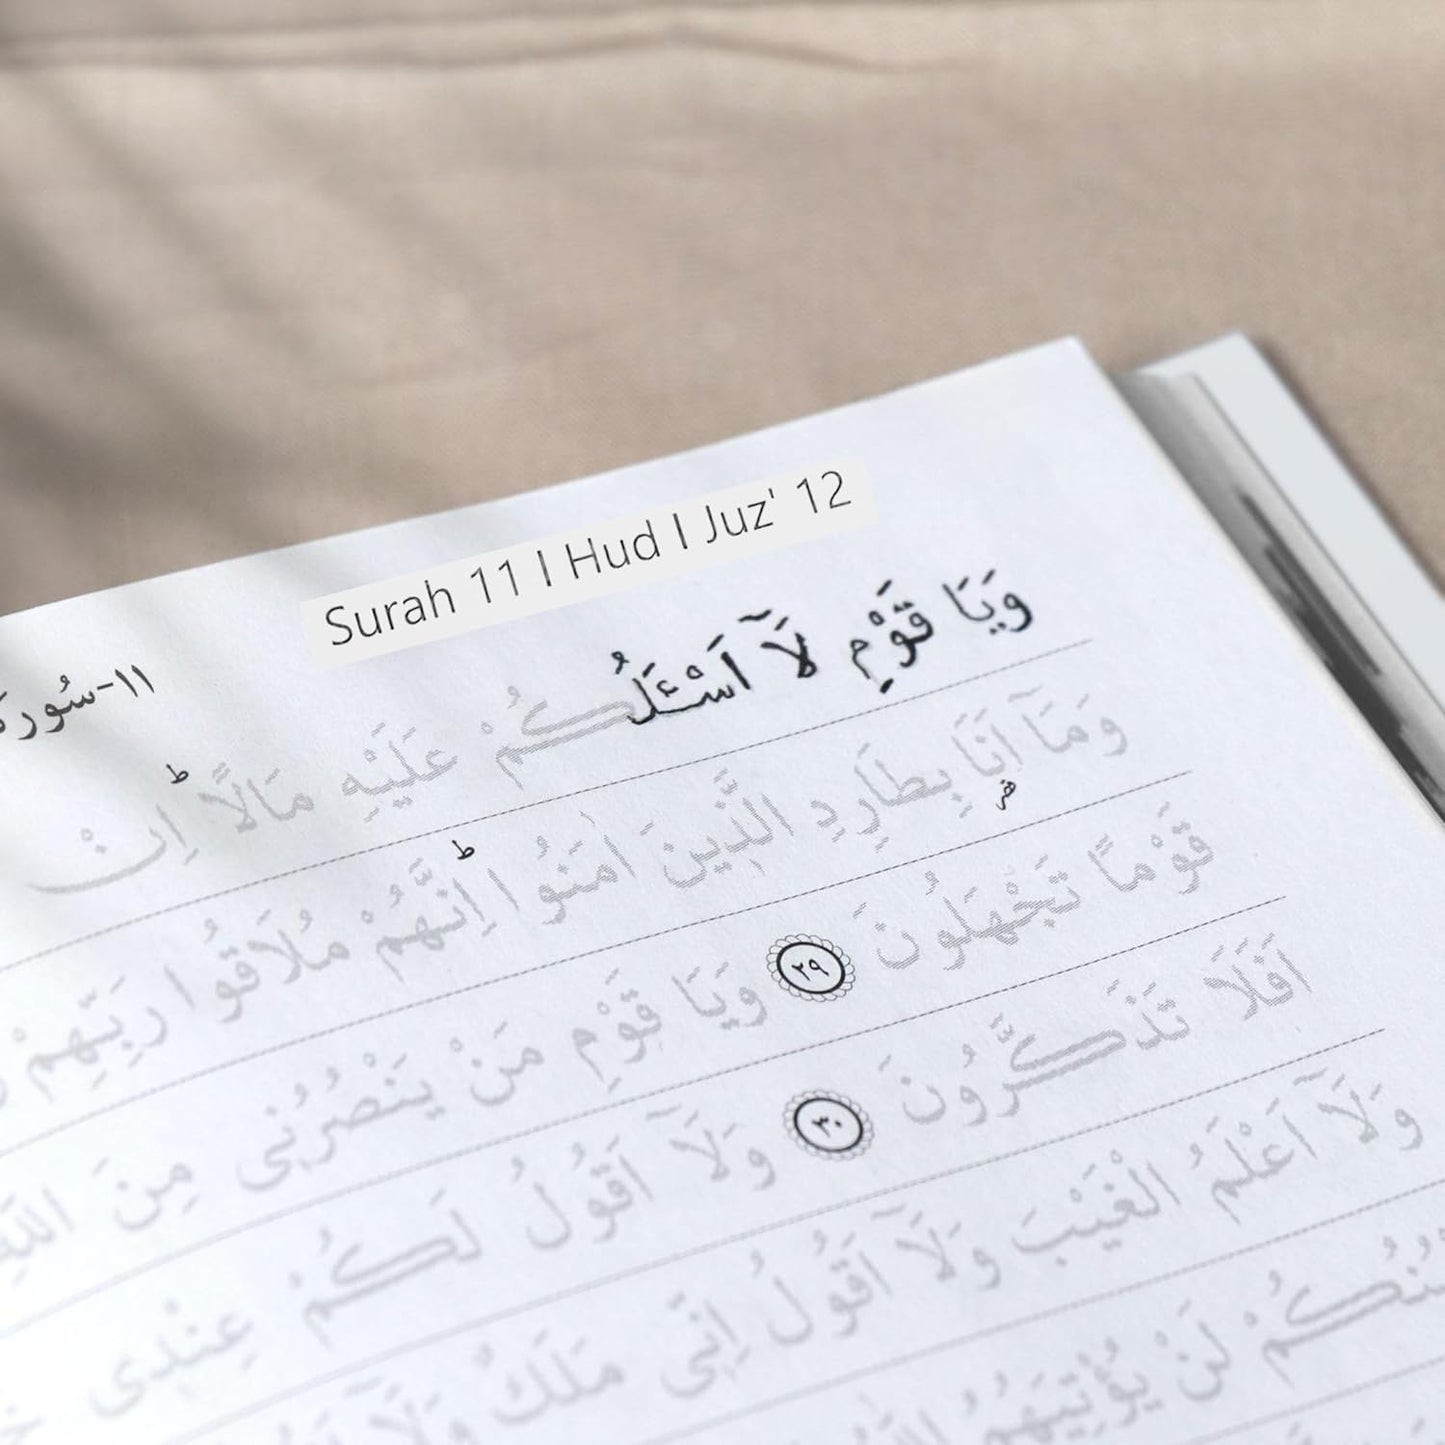 Surah 11 I Hud I Juz' 12
١١-سُورة
وَيَا قَوْمِ لَآ اَسْـَٔلُكُمْ عَلَيْهِ مَالًا ۜ اِنْ
وَمَآ اَنَا بِطَارِدِ الَّذٖينَ اٰمَنُوا اِنَّهُمْ مُلَاقُوا رَبِّهِمْ
قَوْمًا تَجْهَلُونَ ٢٩ وَيَا قَوْمِ مَنْ يَنْصُرُنٖى مِنَ اللّٰهِ
اَفَلَا تَذَكَّرُونَ ٣٠ وَلَآ اَقُولُ لَكُمْ عِنْدٖى
وَلَآ اَعْلَمُ الْغَيْبَ وَلَآ اَقُولُ اِنّٖى مَلَكٌ وَلَآ
لَنْ يُؤْتِيَهُمُ